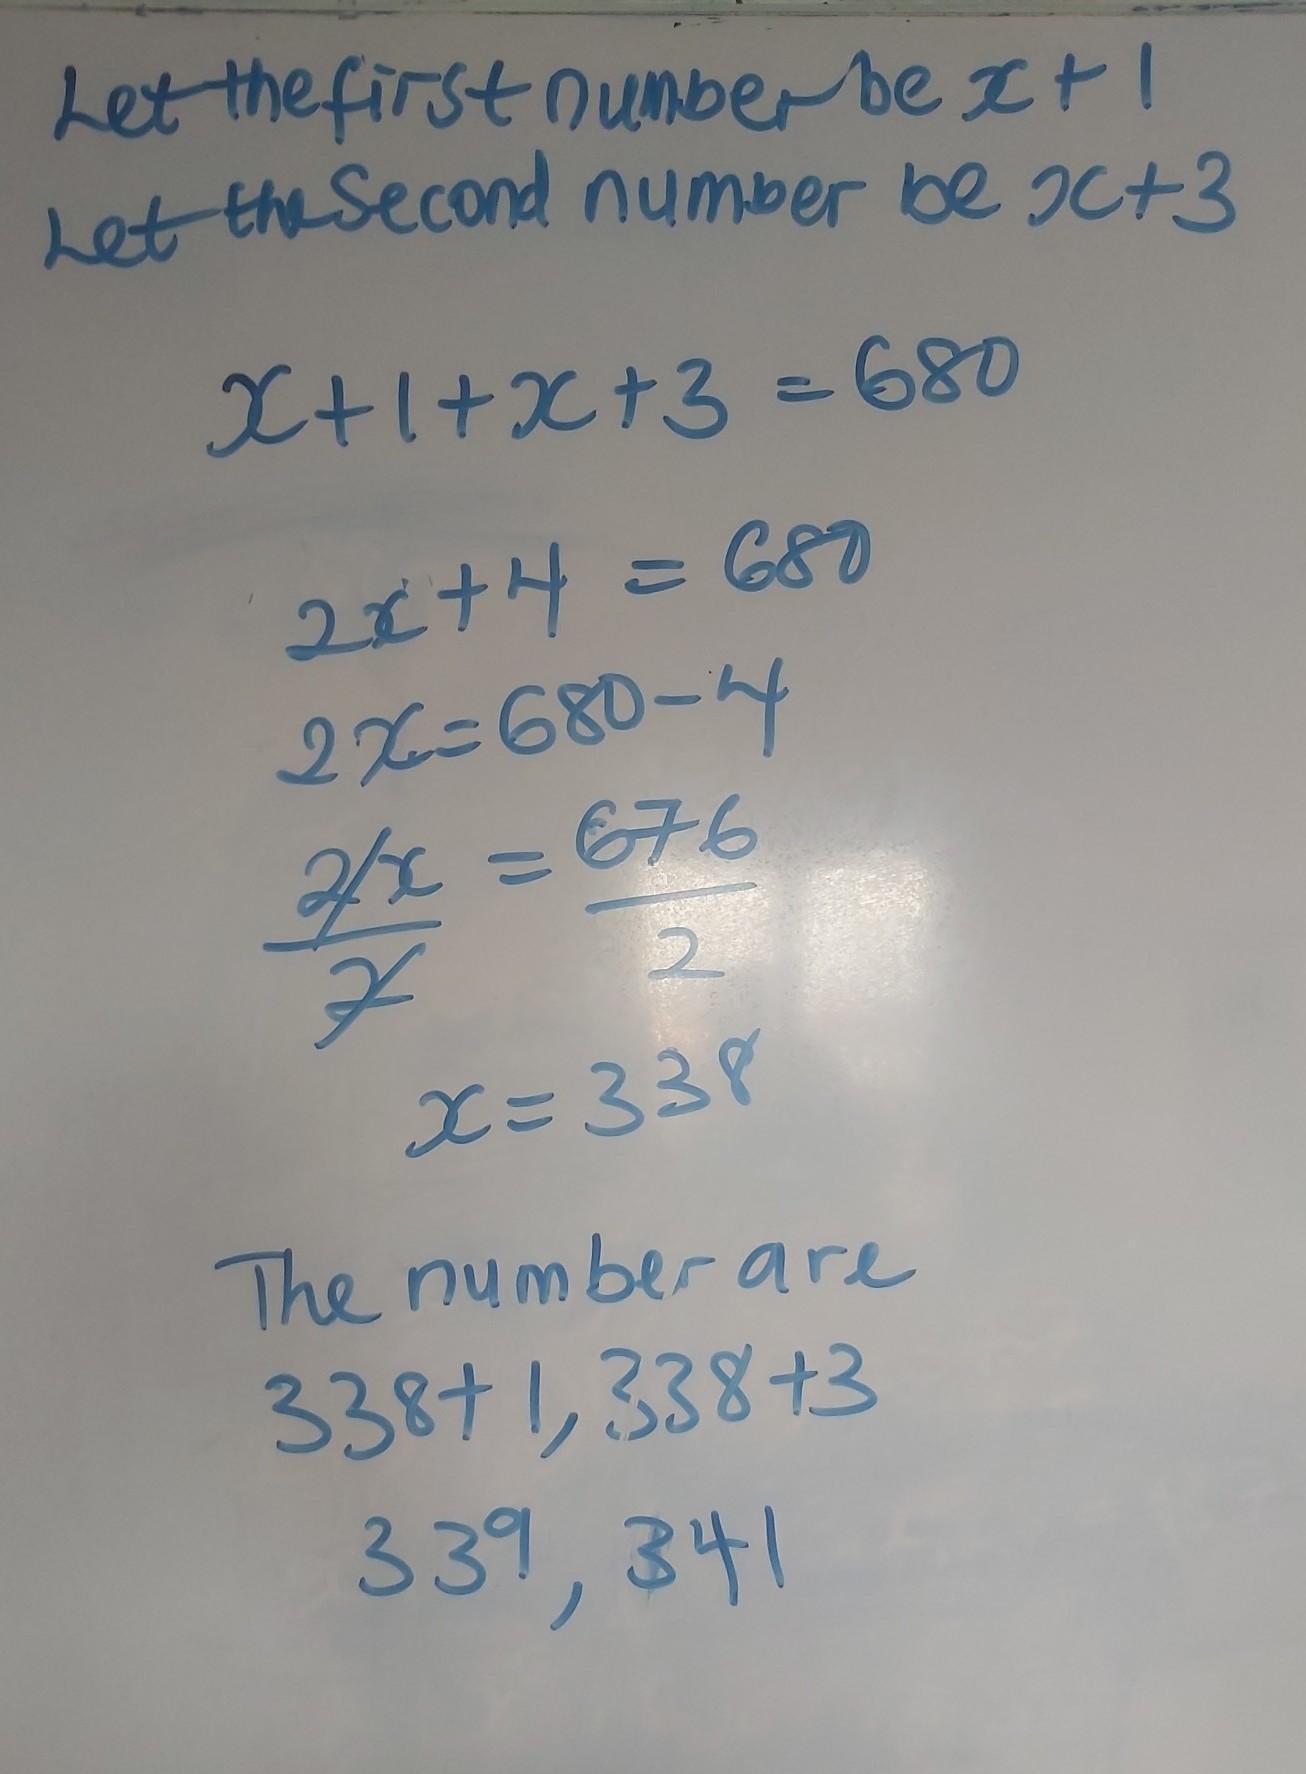 Let the first number be x + 1
Let the Second number be x+3
x+1+x+3 = 680
2x+4 = 680
2x=680-4
2x/2 = 676/2
x=338
The number are
338+1, 338+3
339, 341